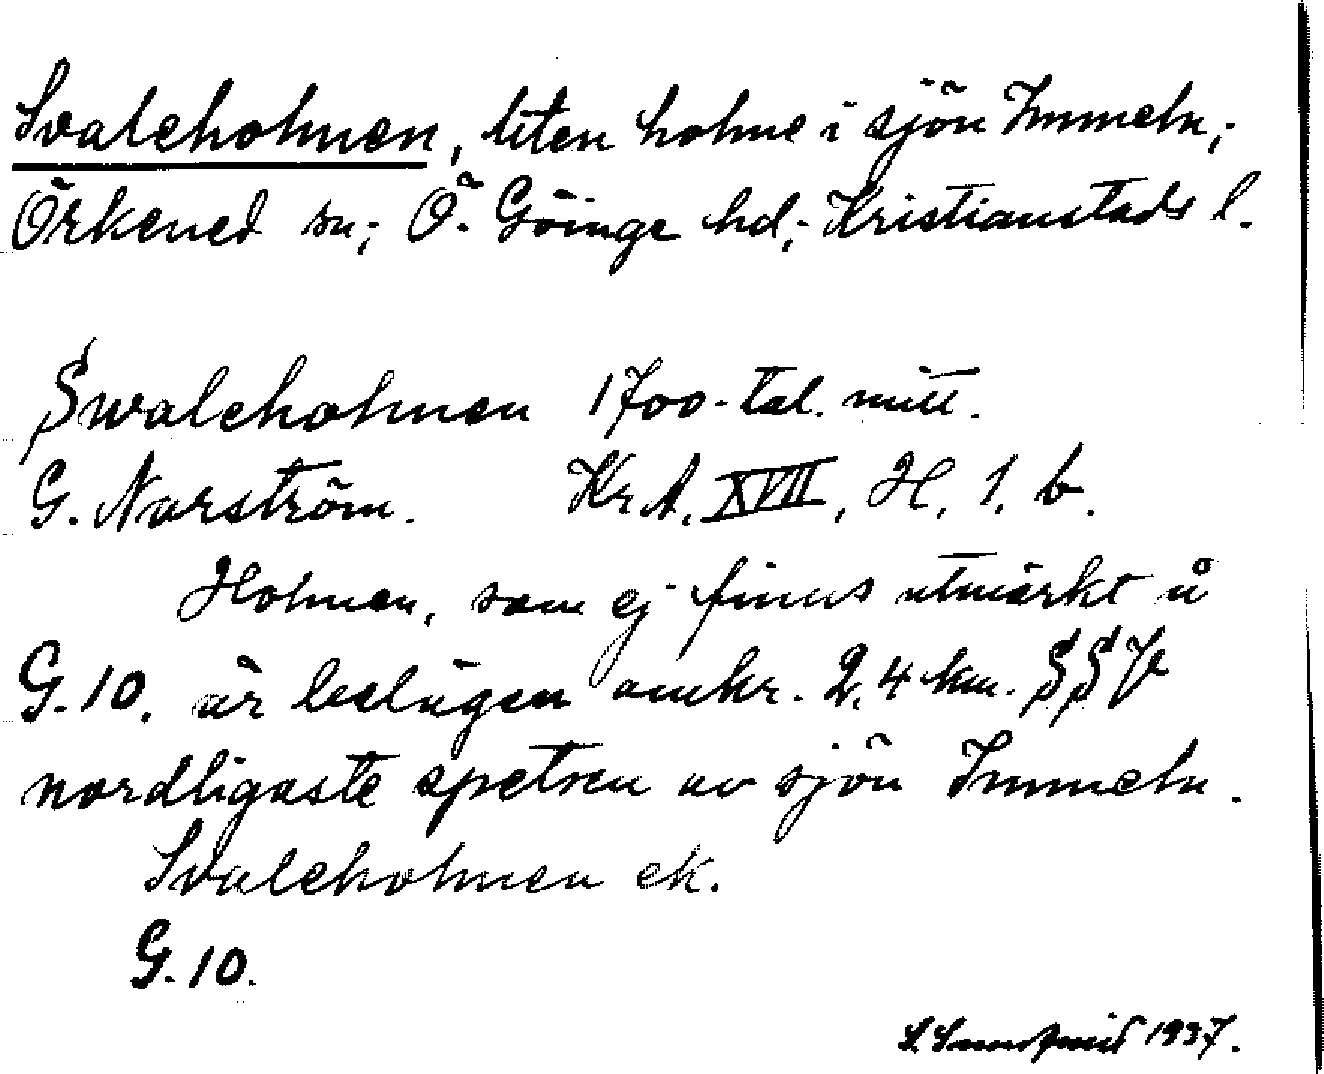 Svaleholmen, liten holme i sjön Immeln,
Örkened sn; Ö. Göinge hd; Kristianstads l.
Swaleholmen 1700-tal. mitt.
G. Norström. Kr.A. XVII, H, 1, b.
Holmen, som ej finns utmärkt å
G.10. är belägen omkr. 2,4 km. SSV
nordligaste spetsen av sjön Immeln.
Svaleholmen ek.
G.10.
1937.